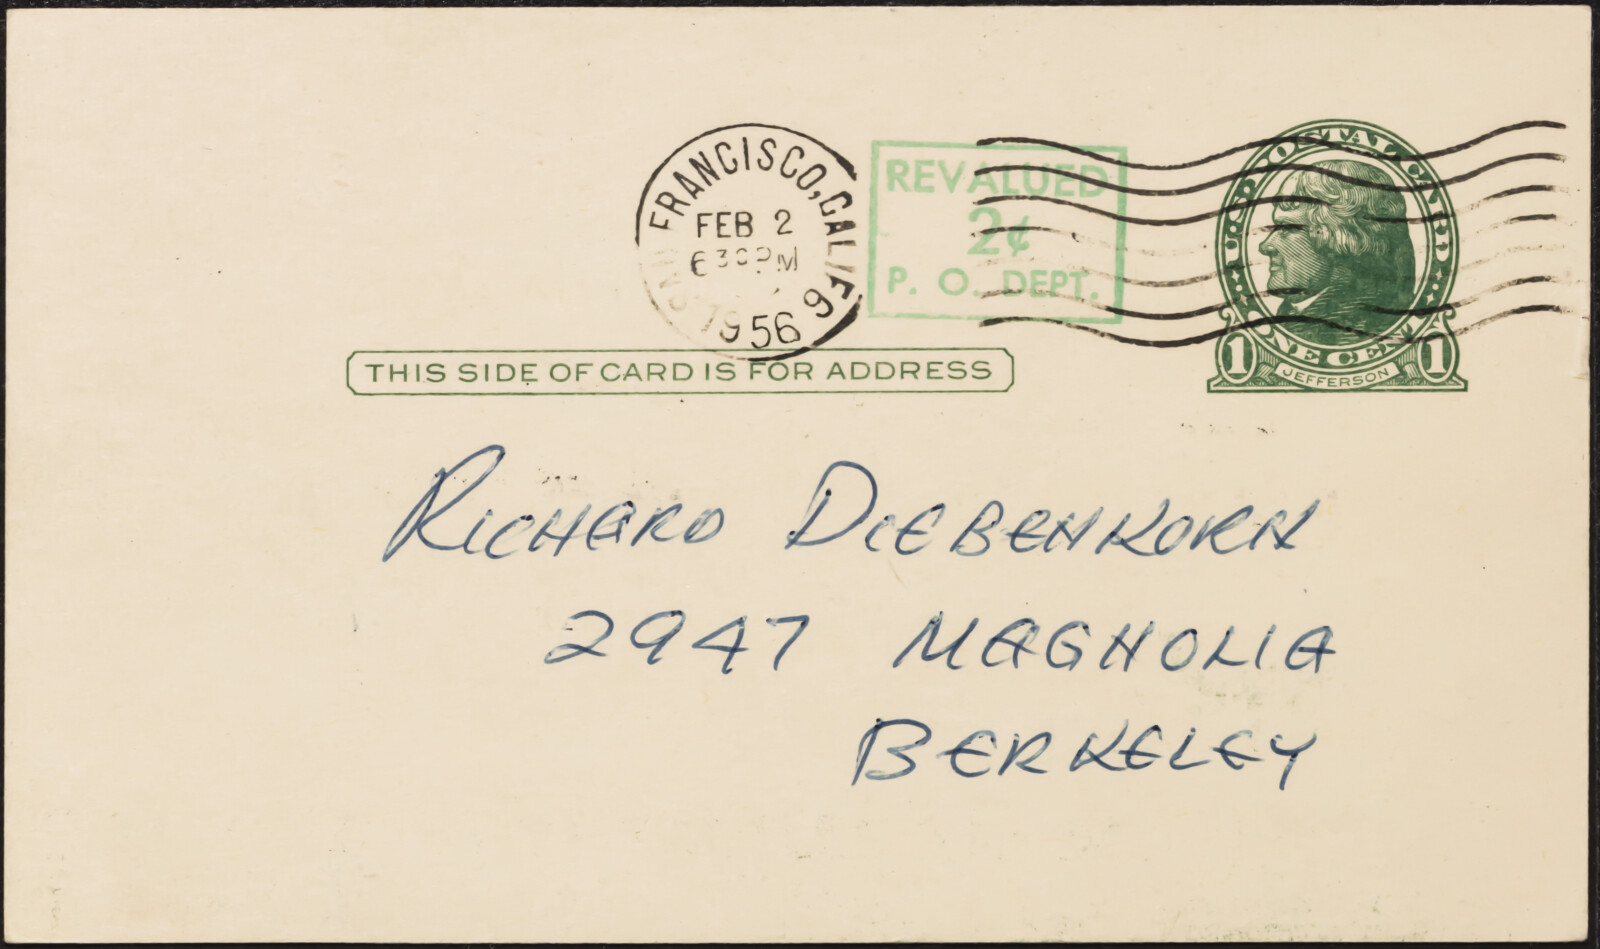 SAN FRANCISCO, CALIF.
FEB 2
6 30 PM
1956
9
REVALUED
2¢
P. O. DEPT.
U·S· POSTAL CARD
ONE CENT
1 JEFFERSON 1
THIS SIDE OF CARD IS FOR ADDRESS
RICHARD DIEBENKORN
2947 MAGNOLIA
BERKELEY